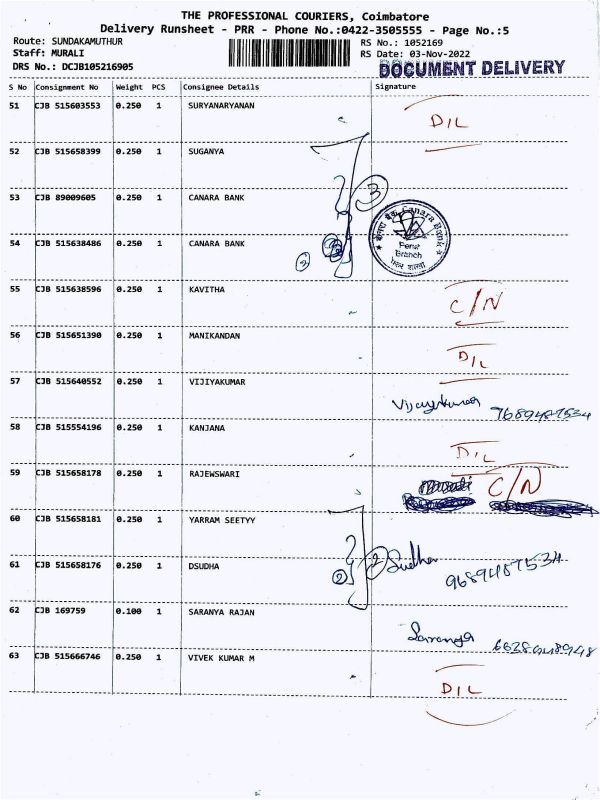 THE PROFESSIONAL COURIERS, Coimbatore
Delivery Runsheet - PRR - Phone No.:0422-3505555 - Page No.:5
Route: SUNDAKAMUTHUR RS No.: 1052169
Staff: MURALI RS Date: 03-Nov-2022
DRS No.: DCJB105216905 DOCUMENT DELIVERY
S No Consignment No Weight PCS Consignee Details Signature
51 CJB 515603553 0.250 1 SURYANARYANAN D/L
52 CJB 515658399 0.250 1 SUGANYA
53 CJB 89009605 0.250 1 CANARA BANK 3
केनरा बैंक Canara Bank
Perur
Branch
शाखा
54 CJB 515638486 0.250 1 CANARA BANK
55 CJB 515638596 0.250 1 KAVITHA C/N
56 CJB 515651390 0.250 1 MANIKANDAN D/L
57 CJB 515640552 0.250 1 VIJIYAKUMAR Vijayakumar 7689487534
58 CJB 515554196 0.250 1 KANJANA D/L
59 CJB 515658178 0.250 1 RAJEWSWARI C/N
60 CJB 515658181 0.250 1 YARRAM SEETYY
61 CJB 515658176 0.250 1 DSUDHA 2 2 Sudha 9689487534
62 CJB 169759 0.100 1 SARANYA RAJAN Saranya
63 CJB 515666746 0.250 1 VIVEK KUMAR M D/L